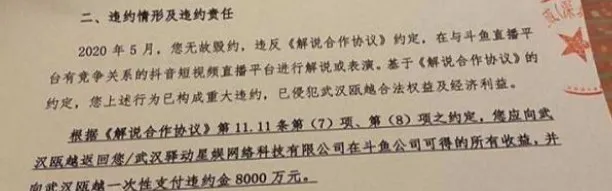 二、违约情形及违约责任
2020 年 5 月，您无故毁约，违反《解说合作协议》约定，在与斗鱼直播平
台有竞争关系的抖音短视频直播平台进行解说或表演。基于《解说合作协议》的
约定，您上述行为已构成重大违约，已侵犯武汉瓯越合法权益及经济利益。
根据《解说合作协议》第 11.11 条第（7）项、第（8）项之约定，您应向武
汉瓯越返回您/武汉驿动星娱网络科技有限公司在斗鱼公司可得的所有收益，并
向武汉瓯越一次性支付违约金 8000 万元。